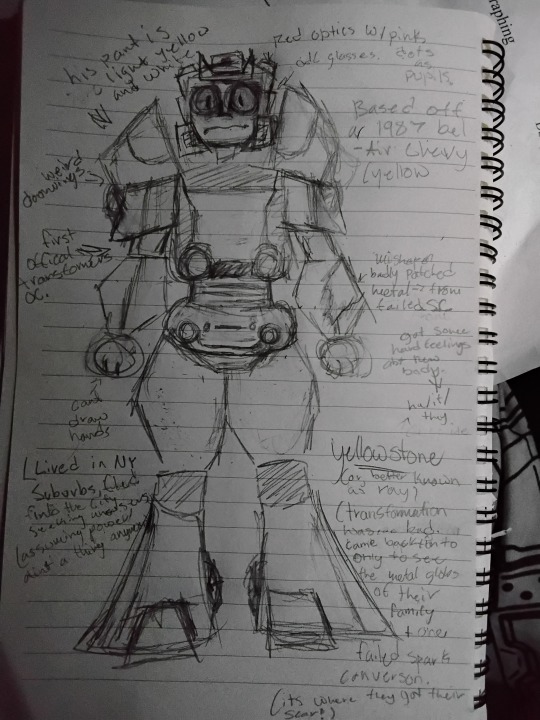 raphing
his paint is
a light yellow
and white
Red optics w/ pink
dots
as
pupils.
glasses.
Based off
a 1987 bel
-Air Chevy
(yellow
weird
doorwings
first
offical
transformers
OC.
mishapen
badly patched
metal from
failed SC
got some
hard feelings
abt new
body.
he/it/
they
cant
draw
hands
Lived in NY
Suburbs, fled
into the city
seeking
(assuming power
aint a thing anymore
Yellowstone
(or better known
as rony)
(transformation
was bad.
came back to
only to see
the metal globs
of their
family
+ one
failed spark
converson.
(its where they got their
scar!)